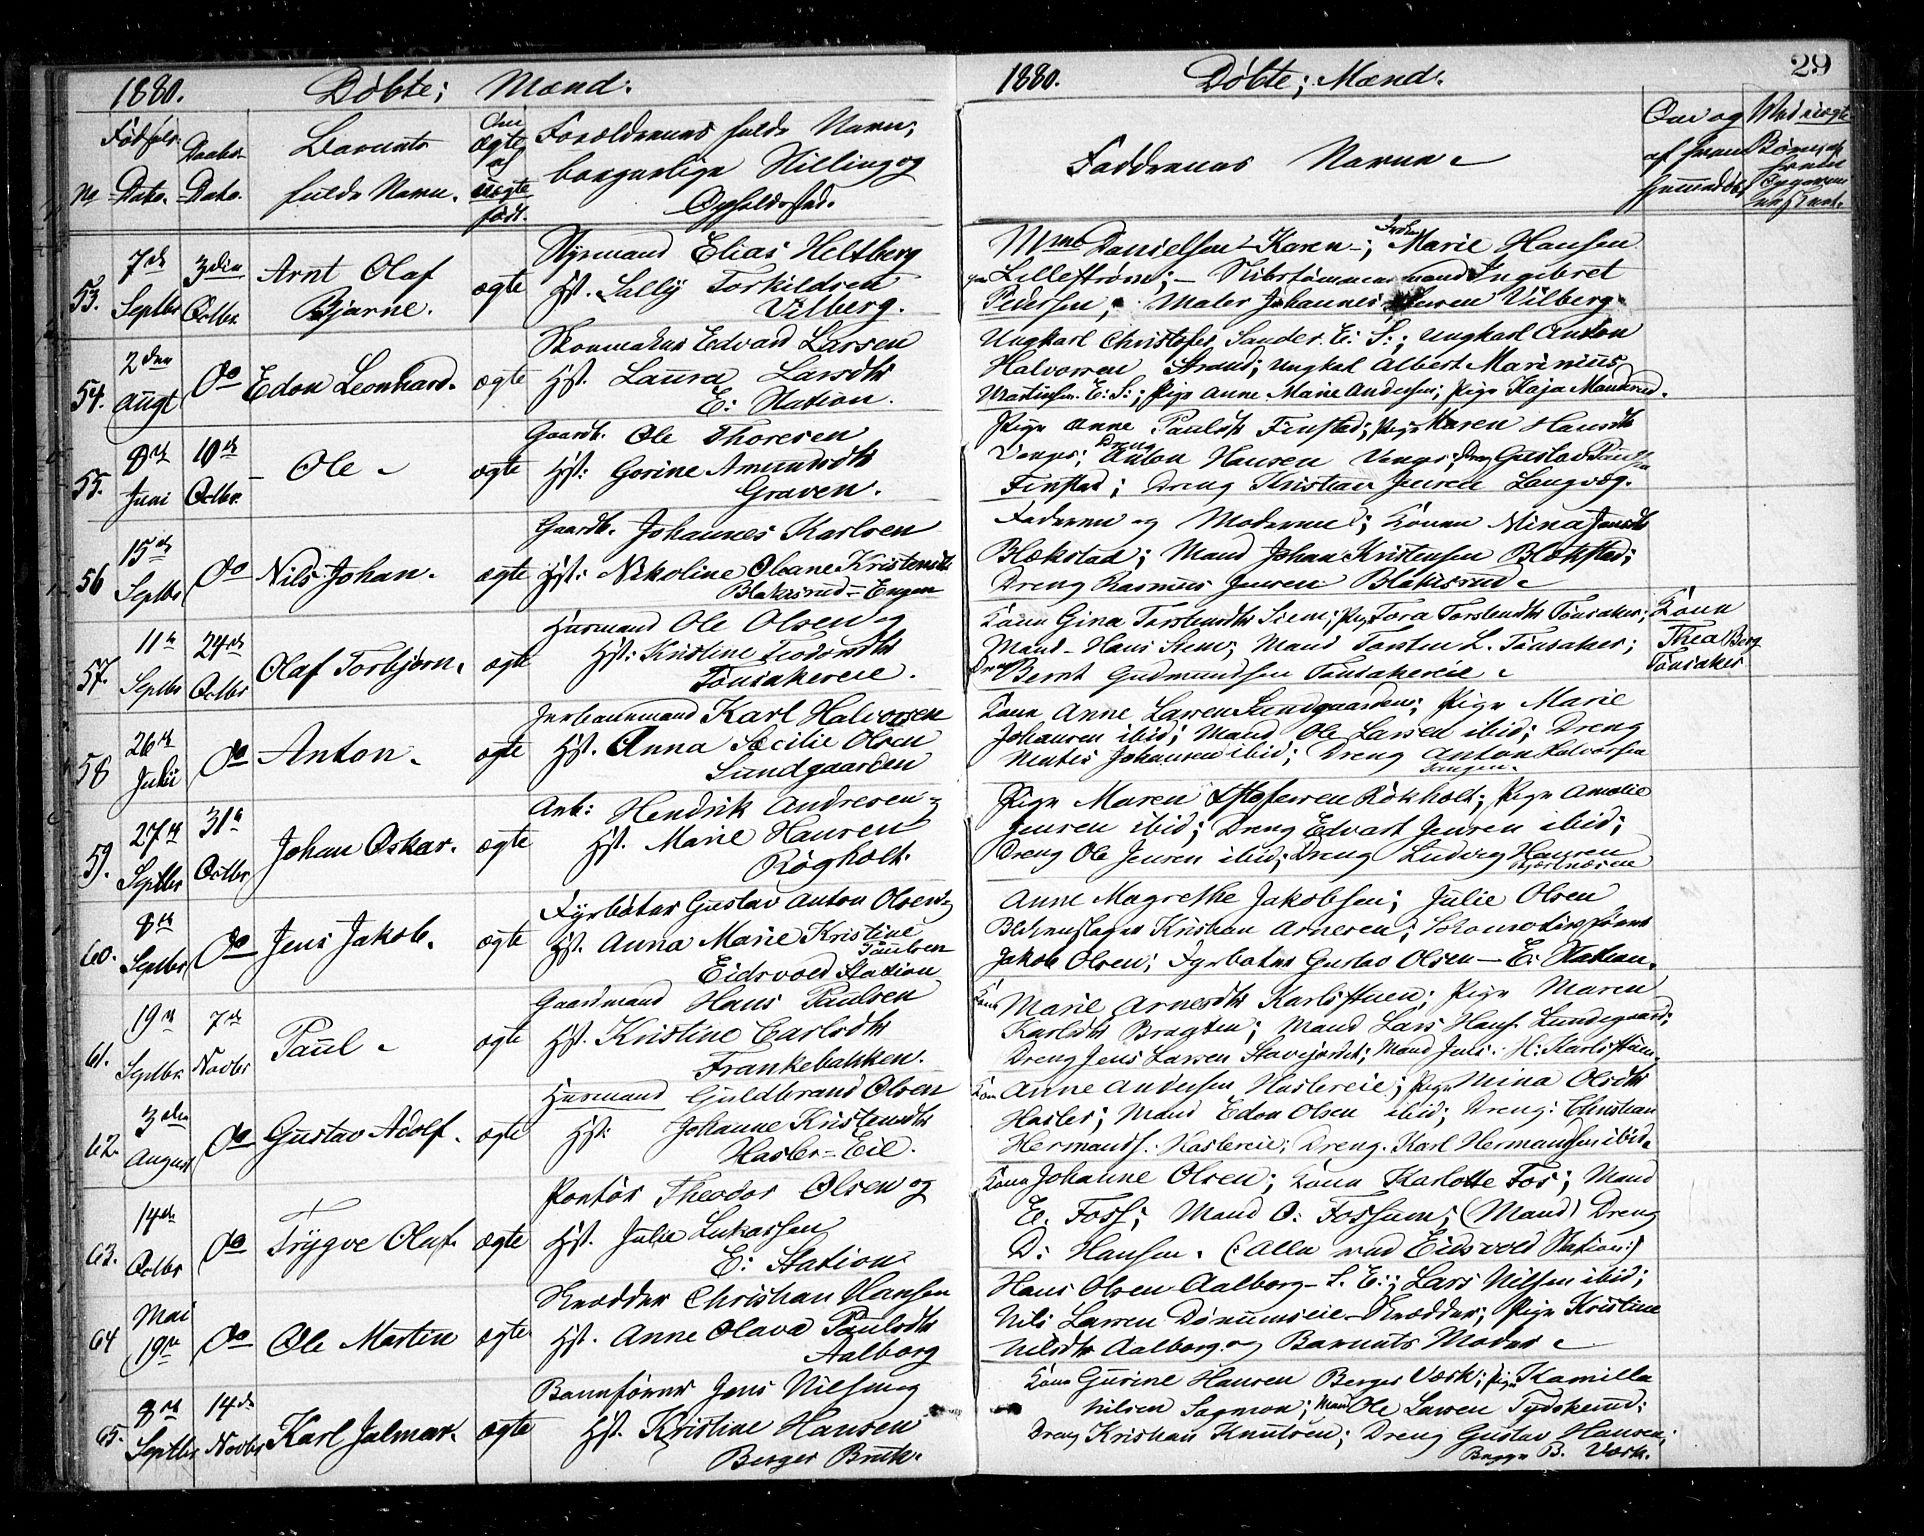 1880. Døbte; Mænd.
Fødsels- Daabs- Barnets Om ægte Forældrenes fulde Navn,
No Dato. Dato. fulde Navn. uægte født. borgerlige Stilling og
Opholdssted.
53. 7de Septbr 3die Octbr. Arnt Olaf Bjarne. ægte Styrmand Elias Heltberg
Hst. Sally Torkildsen
Vilberg.
54. 2den Augt Do Edon Leonhard. ægte Skoemaker Edvard Larsen
Hst. Laura Larsdtr
E: Station.
55. 8de Juni 10de Octbr. Ole ægte Gaardb. Ole Thoresen
Hst: Gorine Amundsdtr
Graven.
56 15de Septbr Do Nils Johan. ægte Gaardb. Johannes Karlsen
Hst: Nikoline Oleane Kristensdtr
Blakisrud-Engen
57. 11te Septbr 24de Octbr Olaf Torbjørn. ægte Husmand Ole Olsen og
Hst: Kristine
Tønsakereie.
58 26de Juli Do Anton. ægte Jernbanemand Karl Halvorsen
Hst. Anna Sæcilie Olsen
Sundgaarden
59. 27de Septbr 31te Octbr Johan Oskar. ægte Arb: Hendrik Andresen og
Hst. Marie Hansen
Røgholt.
60. 8de Septbr Do Jens Jakob. ægte Fyrbøter Gustav Anton Olsen og
Hst. Anna Marie Kristine Paulsen
Eidsvold Station
61. 19de Septbr. 7de Novbr Paul ægte Gaardmand Hans Paulsen
Hst. Kristine Carlsdtr
Frankebakken.
62. 3die August Do Gustav Adolf. ægte Husmand Guldbrand Olsen
Hst: Johanne Kristensdtr
Hasler-Eie.
63. 14de Octbr Do Trygve Olaf. ægte Portør Theodor Olsen og
Hst. Julie Lukassen
E: Station
64 Mai 19de Do Ole Martin ægte Skrædder Christian Hansen
Hst. Anne Olava Paulsdtr
Aalborg
65. 8de Septbr 14de Novbr Karl Jalmar. ægte Banefører Jens Nilsen og
Hst. Kristine Hansen
Berger Bruk.
1880. Døbte; Mænd. 29
Faddernes Navne
Mme Danielsen - Karen -; Frøken Marie Hansen
Lillestrøm; - Ingibret
Pedersen; Maler Johannes Vilberg.
Ungkarl Christofer Sander. E: S:; Ungkarl Anton
Halvorsen Strand; Ungkarl Albert Marinius
Martinsen. E: S:; Pige Anne Marie Andersen; Pige Kaja
Pige Anne Paulsdtr Finstad; Pige Karen Hansdtr
Venger; Dreng Anton Hansen Venger; Dreng Gustav
Finstad; Dreng Kristian Jensen Langvæg.
Faderen og Moderen; Konen Mina
Blekstad; Mand Johan Kristensen Blekstad;
Dreng Rasmus Jensen Blakisrud
Kone Gina Torstensdtr Stem; Pige Tora Torstensdtr Tønsaker; Kone
Mand Hans Stem; Mand Torsten L. Tønsaker; Thea Berg
Dreng Bernt Gudmundsen Tønsakereie Tønsaker
Kone Anne Larsen Sundgaarden; Pige Marie
Johansen ibid; Mand Ole Larsen ibid; Dreng
Johansen ibid; Dreng Anton Halvorsen
Pige Maren Røkholt; Pige Amalie
Jensen ibid; Dreng Edvart Jensen ibid;
Dreng Ole Jensen ibid; Dreng Ludvig Hansen
Anne Magrethe Jakobsen; Julie Olsen
Kristian Arnesen; Lokomotivfører
Jakob Olsen; Fyrbøter Gustav Olsen - E: Station.
Kone Marie Arnesdtr Karlsstuen; Pige Maren
Karlsdtr Bragten; Mand Lars Hans. Lundegaard;
Dreng Jens Larsen; Mand Jens. H: Karlsstuen.
Kone Anne Andersen Haslereie; Pige Mina Olsdtr
Hasler; Mand Edon Olsen ibid; Dreng: Christian
Hermands. Haslereie; Dreng. Karl Hermandsen ibid
Kone Johanne Olsen; Kone Karlotte Fos; Mand
E. Foss; Mand O: Fossum; (Mand) Dreng
D: Hansen. (: Alle ved Eidsvold Station:)
Hans Olsen Aalborg - S. E:; Lars Nilssen ibid;
Nils Larsen - Skrædder; Pige Kristine
Nilsdtr Aalborg og Barnets Moder
Kone Gurine Hansen Berger Værk; Pige Kamilla
Nilsen Sagmoen; Mand Ole Larsen
Dreng Kristian Knutsen; Dreng Gustav Hansen;
Begge B. Værk.